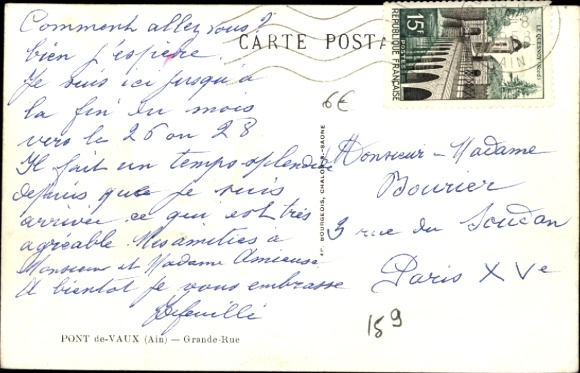 Comment allez vous ?
bien j'espère.
Je suis ici jusqu'à
la fin du mois
vers le 26 ou 28
Il fait un temps splendide
depuis que je suis
arriver ce qui est très
agréable. Mes amitiés à
Monsieur et Madame
A bientôt je vous embrasse
CARTE POSTA
15F
REPUBLIQUE FRANÇAISE
POSTES
LE QUESNOY (Nord)
6€
P. BOURGEOIS, CHALON-S-SAONE
Monsieur - Madame
Bourier
3 rue du Soudan
Paris XVe
159
PONT de-VAUX (Ain) — Grande-Rue